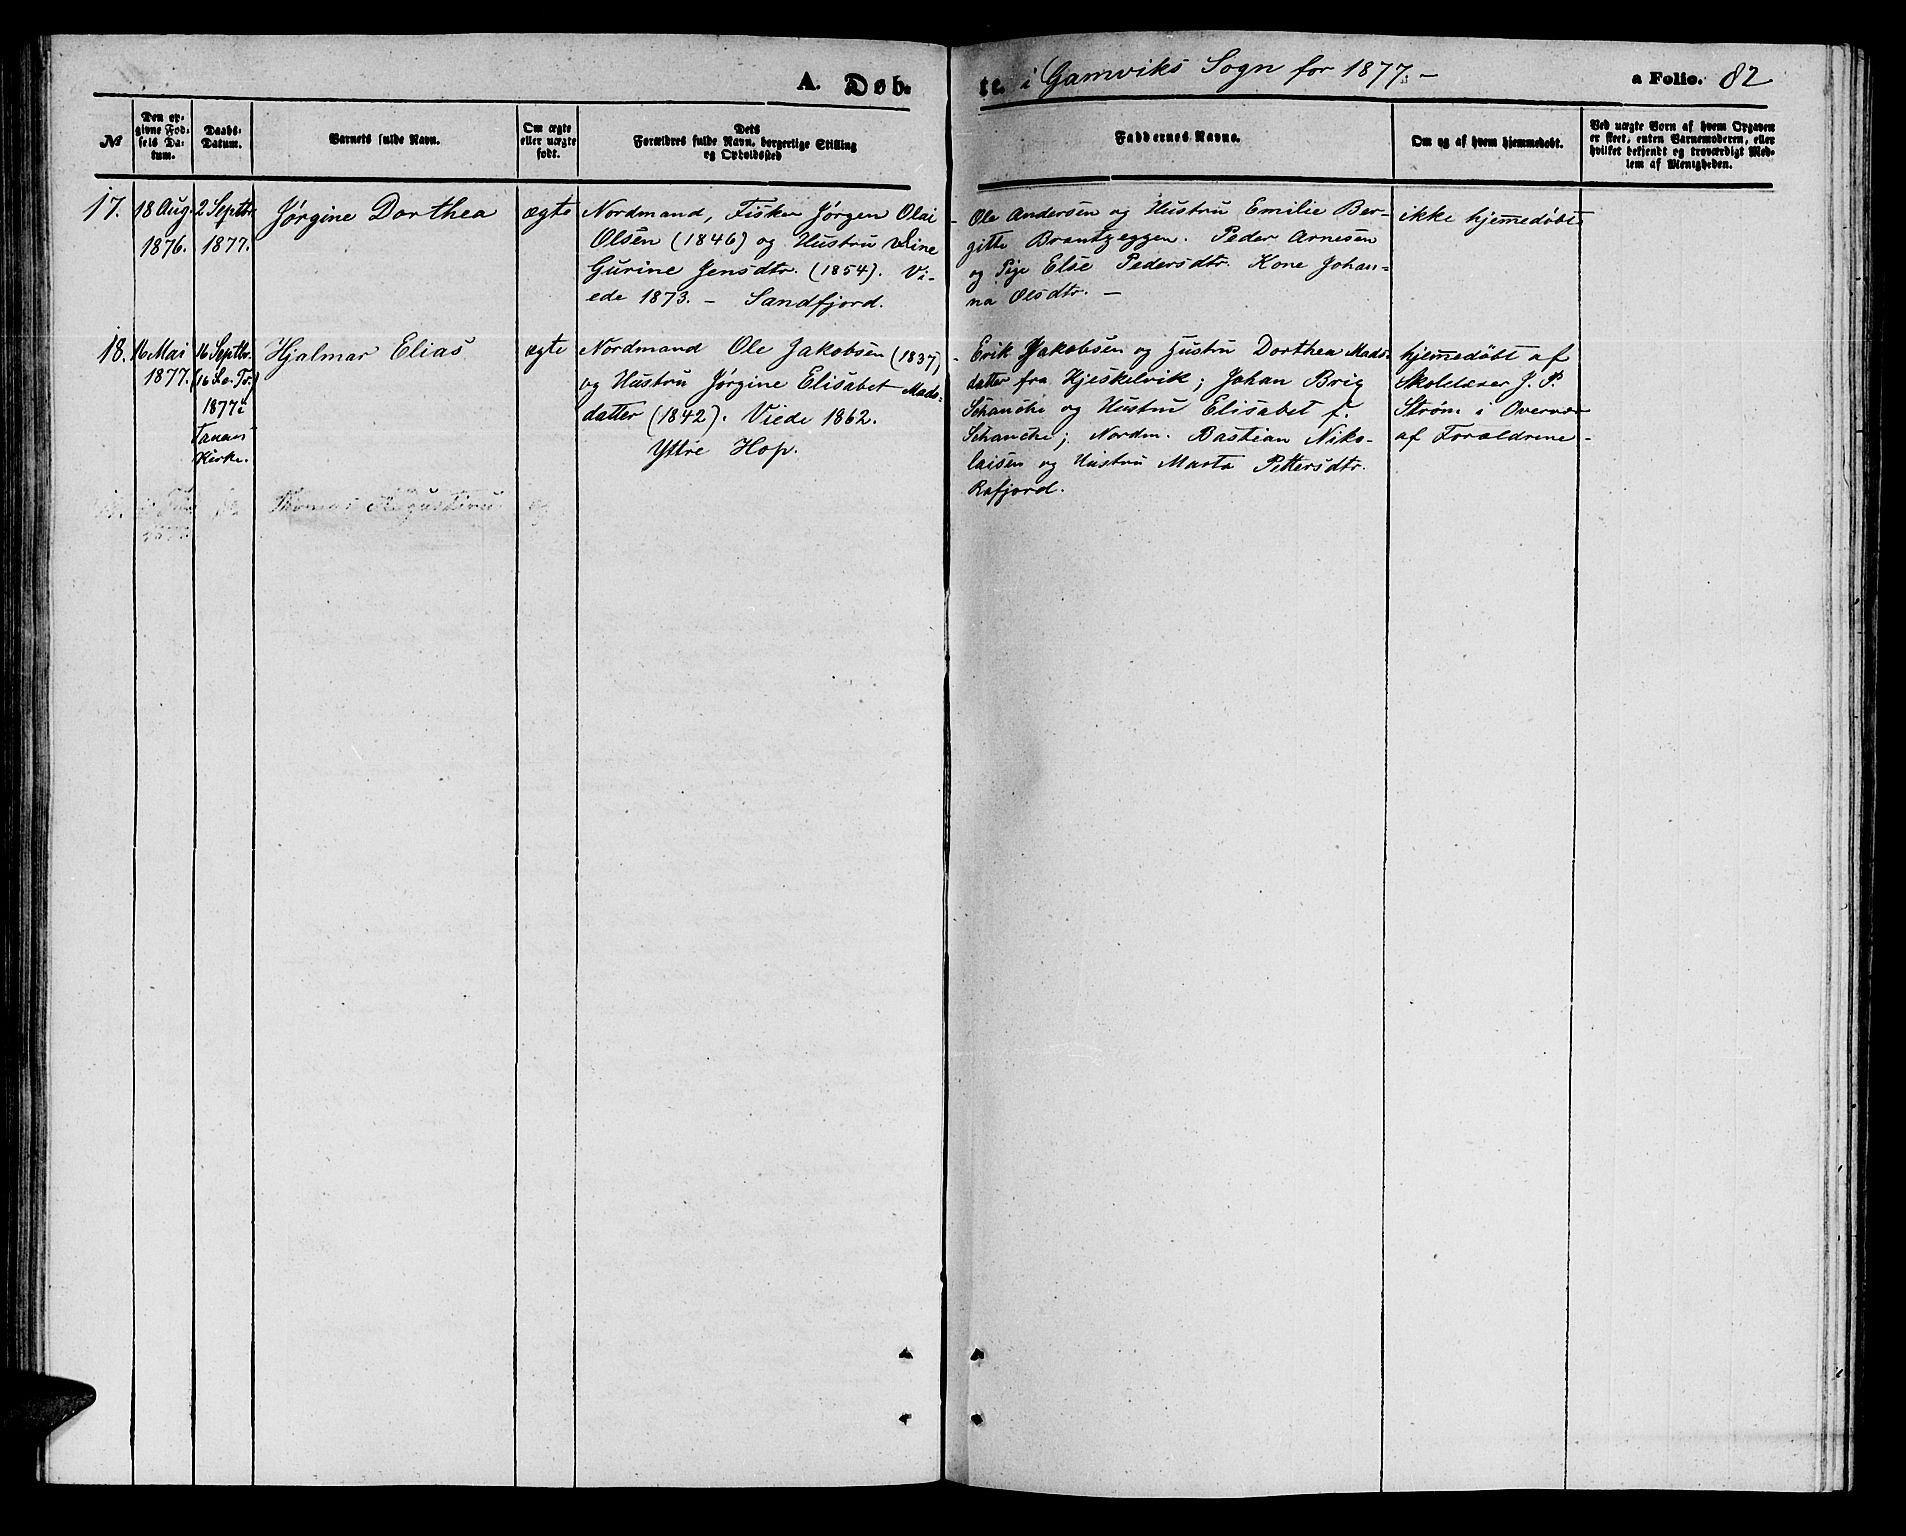 A. Døb-
te. i Gamviks Sogn for 1877. -
a Folio. 82
№
Den er-
givne Fød-
sels Da-
tum.
Daabs-
Datum.
Barnets fulde Navn.
Om ægte
eller uægte
født.
Dets
Forældres fulde Navn, borgerlige Stilling
og Opholdssted
Faddernes Navne.
Om og af hvem hjemmedøbt.
Ved uægte Børn af hvem Opgaven
er skeet, enten Barnemoderen, eller
hvilket bekjendt og troværdigt Med-
lem af Menigheden.
17.
18 Aug.
1876.
2 Septbr.
1877.
Jørgine Dorthea
ægte
Nordmand, Fisker Jørgen Olai
Olsen (1846) og Hustru
Gurine Jensdtr. (1854). Vi-
ede 1873. - Sandfjord.
- Ole Andersen og Hustru Emilie Ber-
gitte Brantzeggen. Peder Arnesen
og Pige Else Pedersdtr. Kone Johan-
na Olsdtr. -
ikke hjemmedøbt
18.
16 Mai
1877.
16 Septbr.
(16 S. e. Tr.)
1877 i
Tanens
Kirke.
Hjalmar Elias
ægte
Nordmand Ole Jakobsen (1837)
og Hustru Jørgine Elisabet Mads-
datter (1842). Viede 1862.
Yttre Hop.
- Erik Jakobsen og Hustru Dorthea Mads-
datter fra Hjeskelvik; Johan Brig
Schanche og Hustru Elisabet f.
Schanche; Nordm. Bastian Niko-
laisen og Hustru Marta Pettersdtr.
Rafjord.
hjemmedøbt af
Skolelærer J. P.
Strøm i Overvær
af Forældrene -
Thomas Augustinus